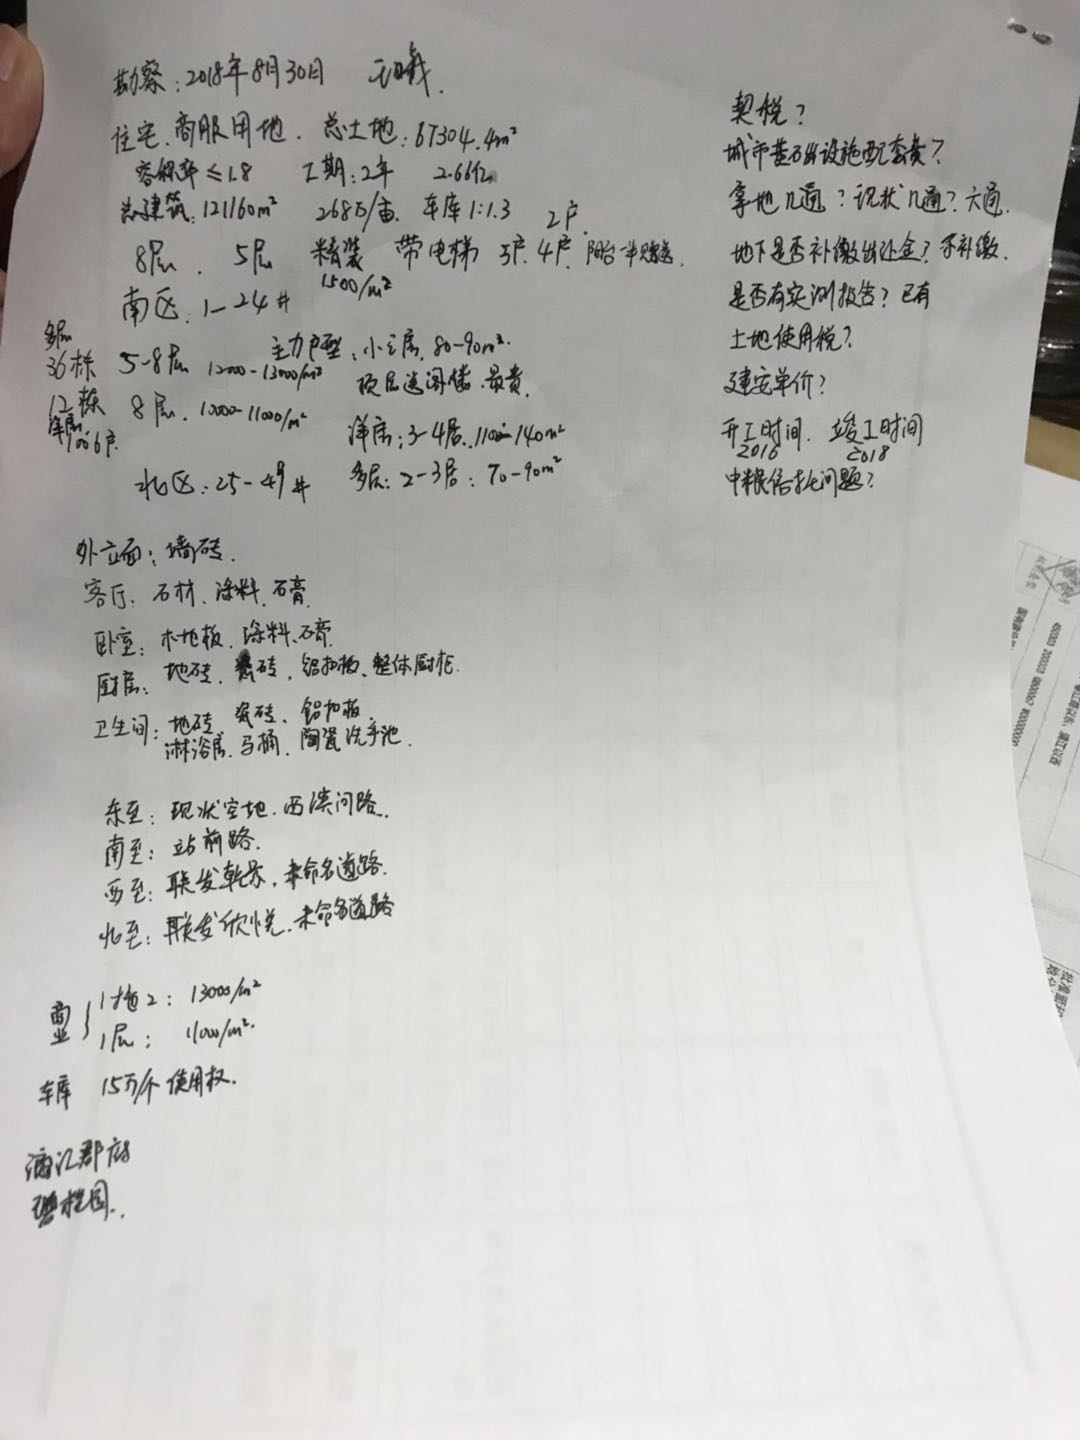 勘察：2018年8月30日
住宅、商服用地． 总土地：67304.4m²
容积率≤1.8 工期：2年 2.66亿
总建筑：121160m² 268万/亩． 车库1:1.3 2户
8层． 5层 精装 带电梯 3户．4户． 阳台一半赠送．
1500/m²
南区：1-24#
多层
36栋 5-8层 12000-13000/m² 主力户型：小三房．80-90m²．
顶层送阁楼．最贵．
12栋 8层．10000-11000/m²
洋房 洋房：3-4居．110-140m²
北区：25-49# 多层：2-3居：70-90m²
外立面：墙砖．
客厅：石材、涂料、石膏
卧室：木地板、涂料、石膏
厨房：地砖、瓷砖、铝扣板、整体厨柜．
卫生间：地砖、瓷砖、铝扣板
淋浴房、马桶、陶瓷洗手池．
东至：现状空地．西溪间路．
南至：站前路．
西至：联发乾景．未命名道路．
北至：联发欣悦．未命名道路
商业 { 1拖2：13000/m²
1层：11000/m²．
车库 15万/个 使用权．
漓江郡府
碧桂园．
契税？
城市基础设施配套费？
拿地几通？现状几通？六通．
地下是否补缴出让金？不补缴．
是否有实测报告？已有
土地使用税？
建安单价？
开工时间． 竣工时间
2016 2018
中粮信托问题？